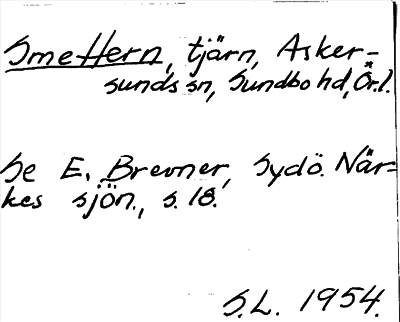 Smettern, tjärn, Asker-
sunds sn, Sundbo hd, Ör.l.
Se E. Brevner, Sydö. När-
kes sjön., s. 18.
S.L. 1954.